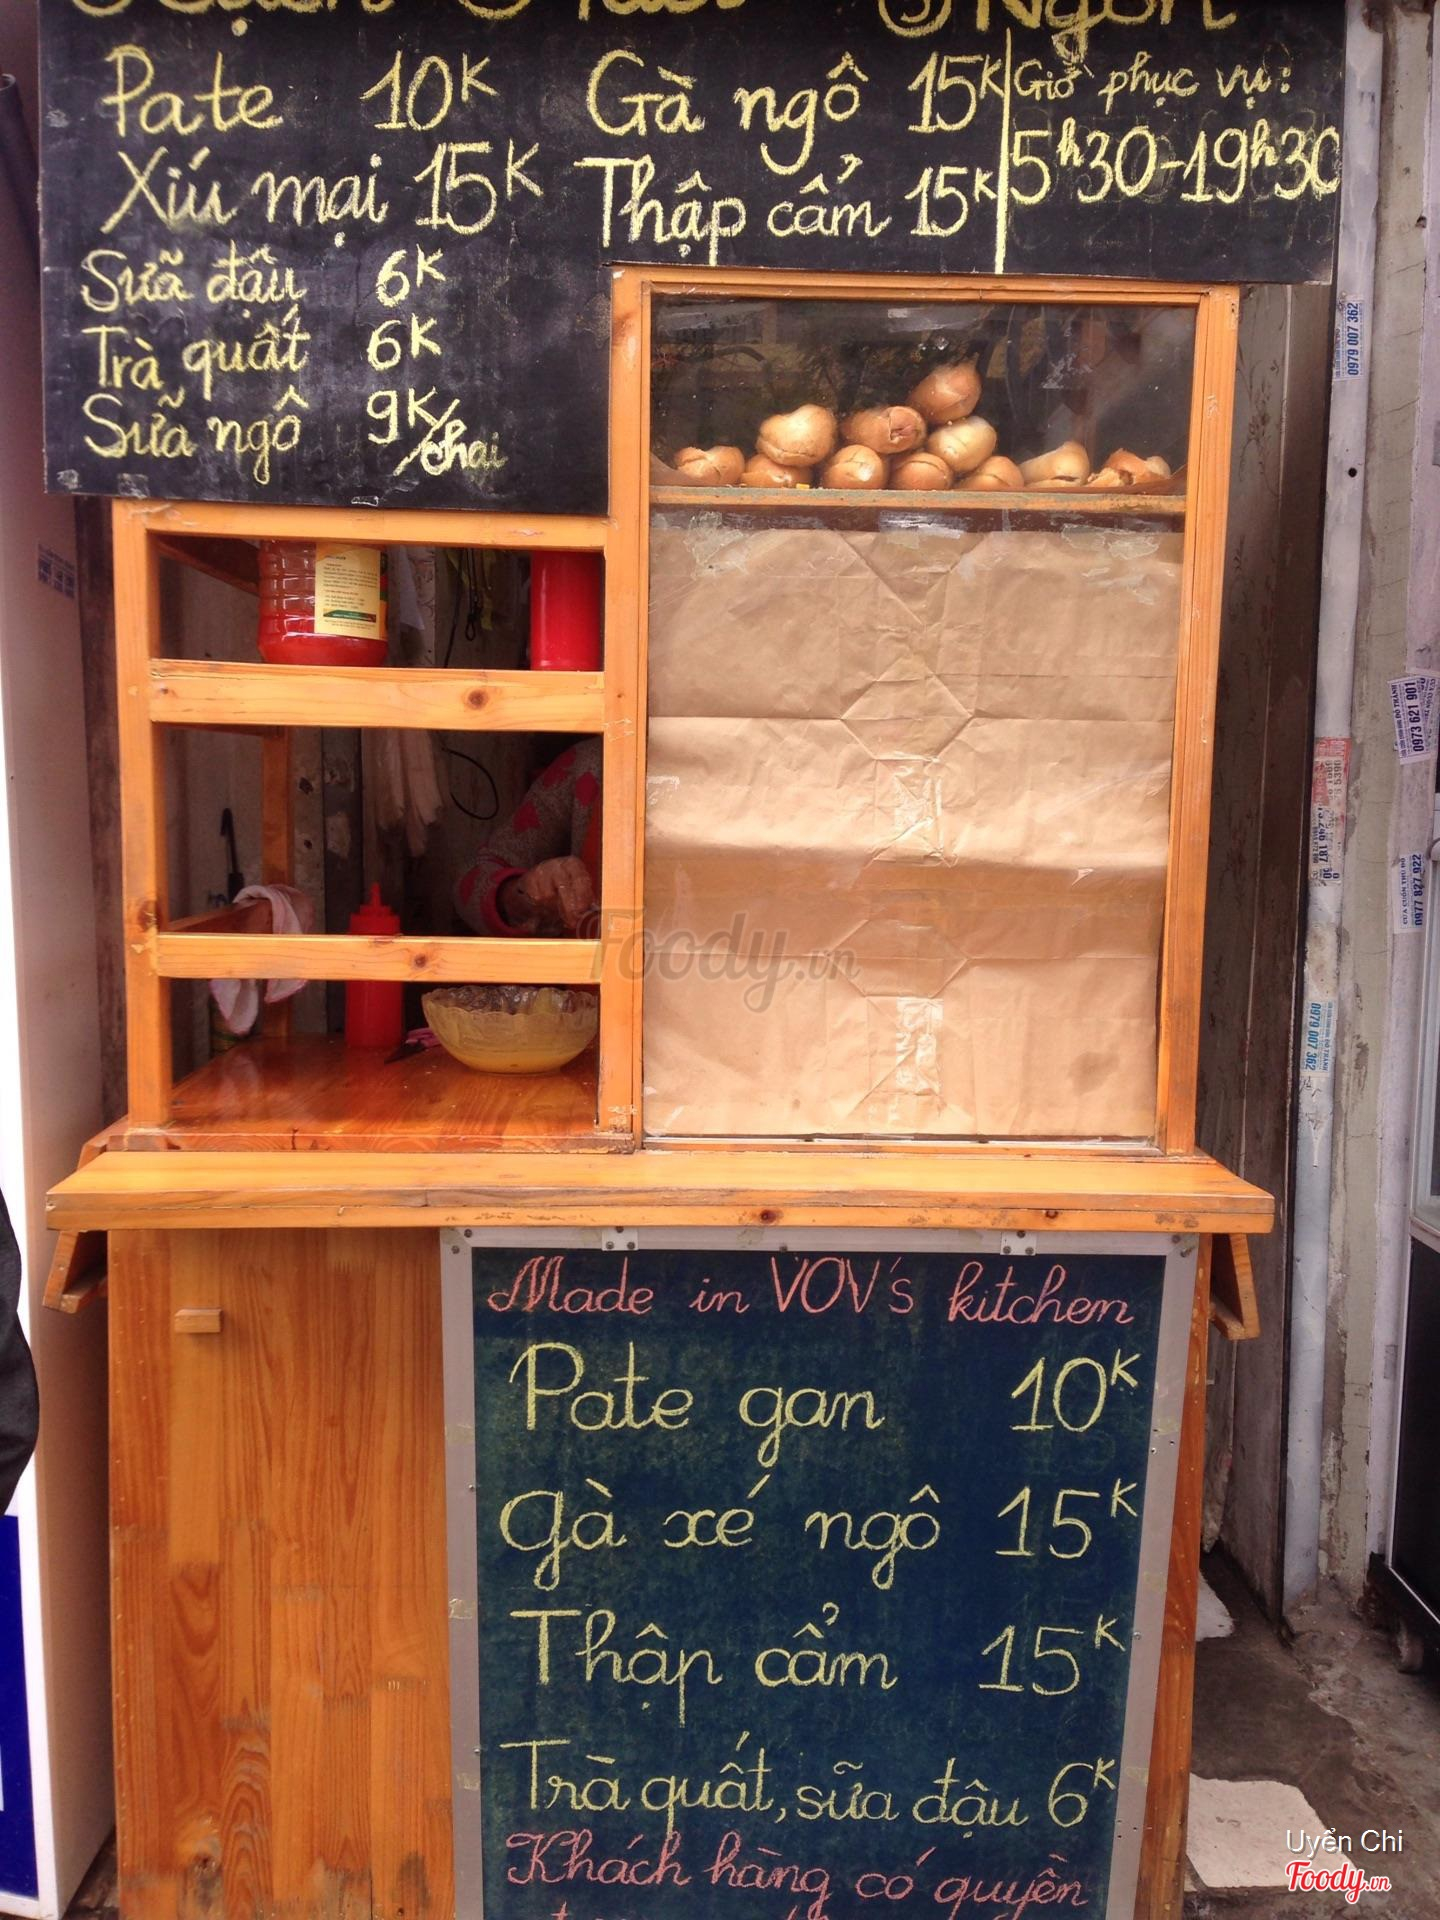 Ngon
Pate 10K
Xíu mại 15K
Sữa đậu 6K
Trà quất 6K
Sữa ngô 9K/chai
Gà ngô 15K
Thập cẩm 15K
Giờ phục vụ:
5h30-19h30
0979 007 362
0973 621 901
CỬA CUỐN THỦ ĐÔ
0977 827 922
0979 007 362
Foody.vn
Made in VOV's kitchen
Pate gan 10K
Gà xé ngô 15K
Thập cẩm 15K
Trà quất, sữa đậu 6K
Khách hàng có quyền
Uyển Chi
Foody.vn